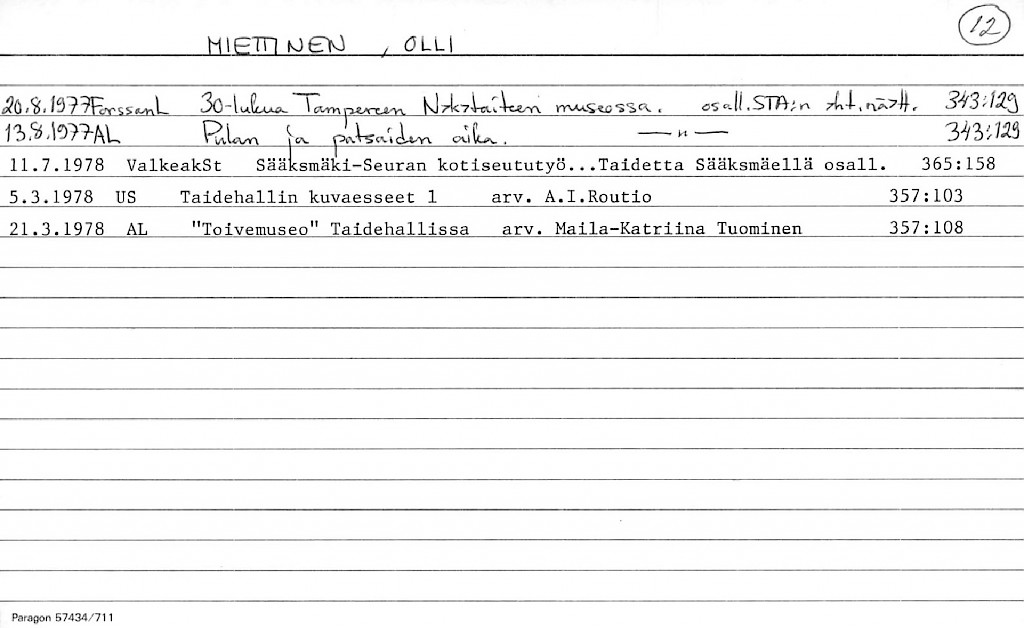 12
MIETTINEN, OLLI
20.8.1977 ForssanL 30-lukua Tampereen Nykytaiteen museossa. osall. STA:n yht.näytt. 343:129
13.8.1977 AL Pulan ja patsaiden aika. —"— 343:129
11.7.1978 ValkeakSt Sääksmäki-Seuran kotiseututyö...Taidetta Sääksmäellä osall. 365:158
5.3.1978 US Taidehallin kuvaesseet 1 arv. A.I.Routio 357:103
21.3.1978 AL "Toivemuseo" Taidehallissa arv. Maila-Katriina Tuominen 357:108
Paragon 57434/711